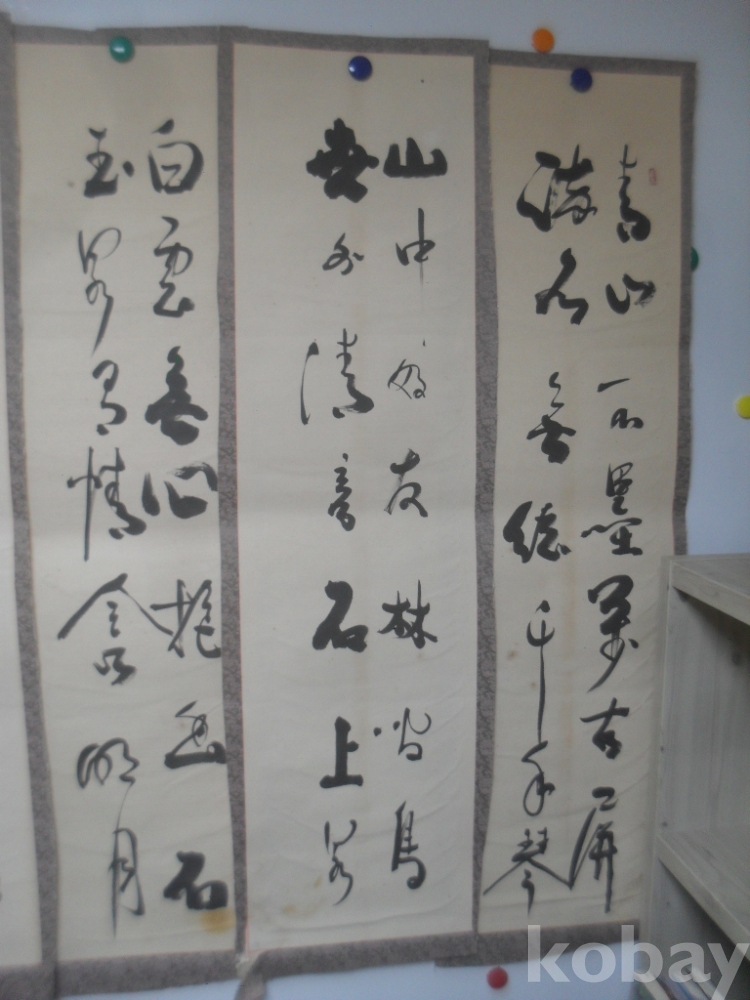 青山不墨萬古屛
流水無絃千年琴
山中好友林間鳥
世外清音石上泉
白雲無心抱幽石
玉泉有情含明月
kobay